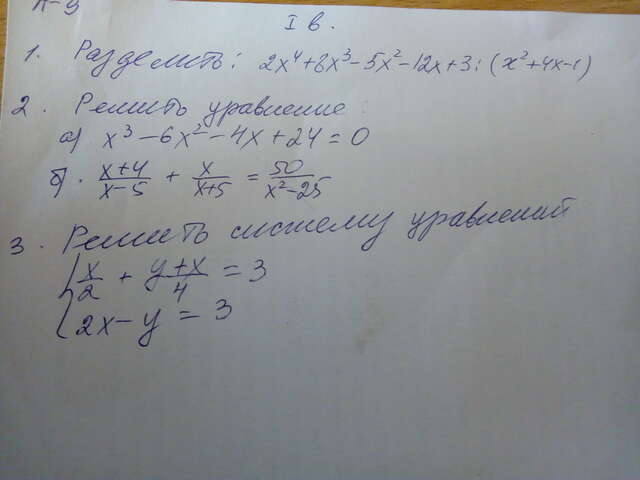 К-9
I в.
1. Разделить: 2x⁴+8x³-5x²-12x+3:(x²+4x-1)
2. Решить уравнение:
а) x³-6x²-4x+24=0
б). \frac{x+4}{x-5} + \frac{x}{x+5} = \frac{50}{x²-25}
3. Решить систему уравнений
{ \frac{x}{2} + \frac{y+x}{4} = 3
2x-y=3